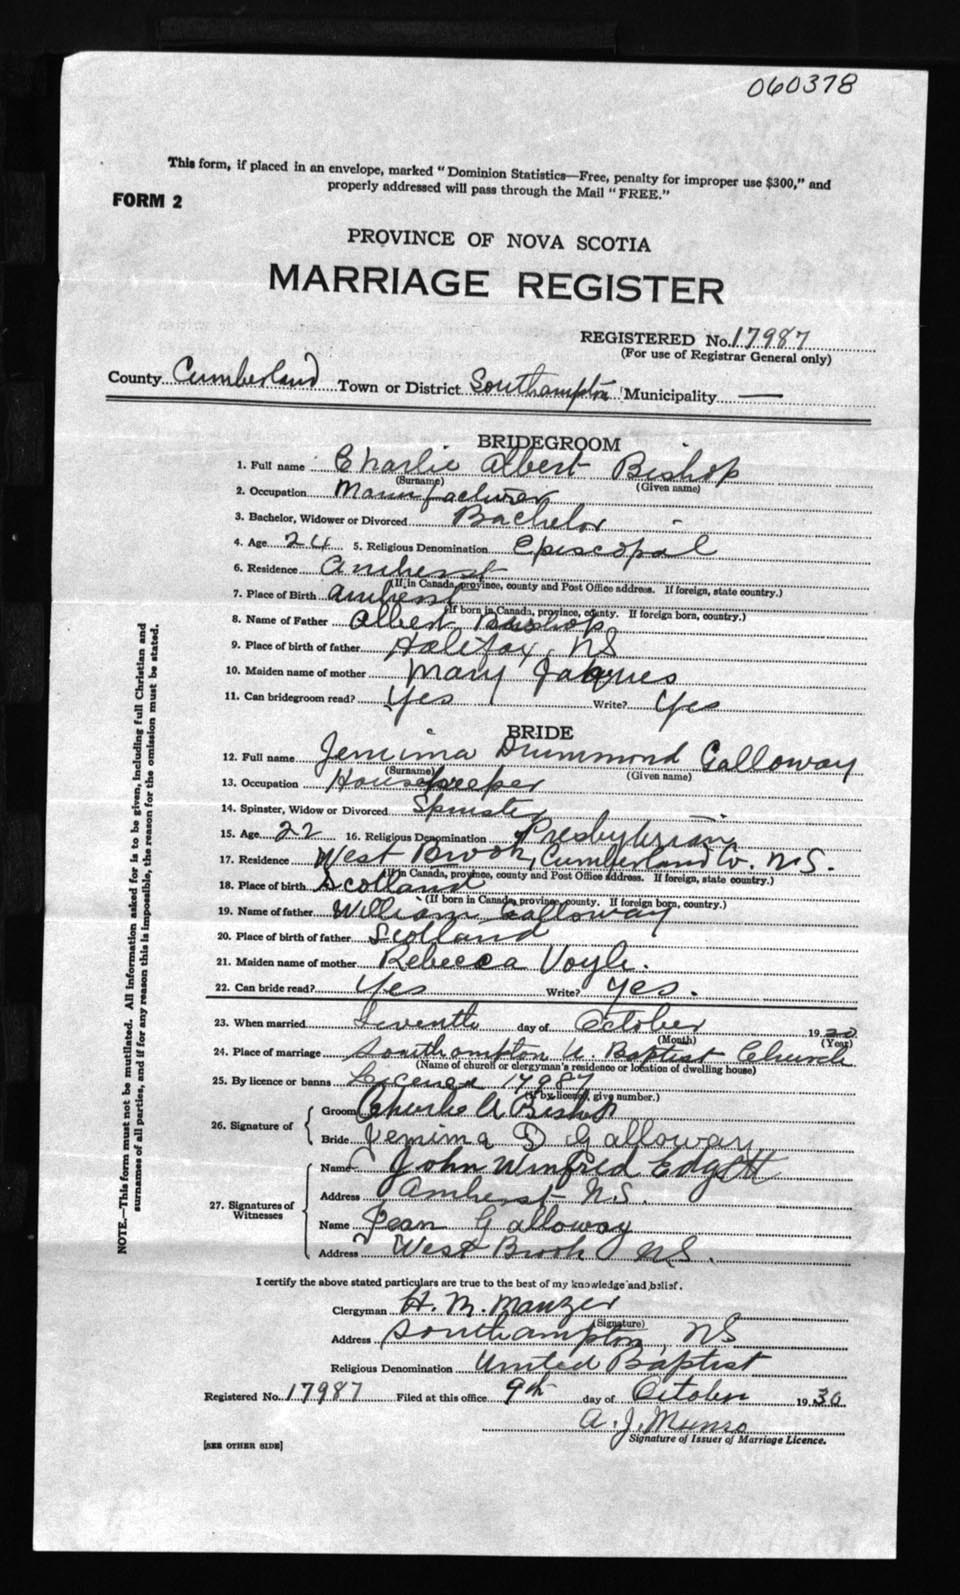 060378
This form, if placed in an envelope, marked "Dominion Statistics—Free, penalty for improper use $300," and
properly addressed will pass through the Mail "FREE."
FORM 2
PROVINCE OF NOVA SCOTIA
MARRIAGE REGISTER
REGISTERED No. 17987
(For use of Registrar General only)
County Cumberland Town or District Southampton Municipality —
BRIDEGROOM
1. Full name Charlie Albert Bishop
(Surname) (Given name)
2. Occupation Manufacturer
3. Bachelor, Widower or Divorced Bachelor
4. Age 24 5. Religious Denomination Episcopal
6. Residence Amherst
(If in Canada, province, county and Post Office address. If foreign, state country.)
7. Place of Birth Amherst
(If born in Canada, province, county. If foreign born, country.)
8. Name of Father Albert Bishop
9. Place of birth of father Halifax, NS
10. Maiden name of mother Mary Jaques
11. Can bridegroom read? Yes Write? Yes
BRIDE
12. Full name Jemima Drummond Galloway
(Surname) (Given name)
13. Occupation Housekeeper
14. Spinster, Widow or Divorced Spinster
15. Age 22 16. Religious Denomination Presbyterian
17. Residence West Brook, Cumberland Co. N.S.
(If in Canada, province, county and Post Office address. If foreign, state country.)
18. Place of birth Scotland
(If born in Canada, province, county. If foreign born, country.)
19. Name of father William Galloway
20. Place of birth of father Scotland
21. Maiden name of mother Rebecca Voyle.
22. Can bride read? Yes Write? Yes.
23. When married Seventh day of October 1930
(Month) (Year)
24. Place of marriage Southampton U. Baptist Church
(Name of church or clergyman's residence or location of dwelling house)
25. By licence or banns License 17987
(If by licence, give number.)
26. Signature of Groom Charlie A Bishop
Bride Jemima D Galloway
27. Signatures of Witnesses
Name John Winfred Edgett
Address Amherst N.S.
Name Jean Galloway
Address West Brook NS.
I certify the above stated particulars are true to the best of my knowledge and belief.
Clergyman H. M. Manzer
(Signature)
Address Southampton, NS
Religious Denomination United Baptist
Registered No. 17987 Filed at this office 9th day of October 1930
A. J. Munro
Signature of Issuer of Marriage Licence.
[SEE OTHER SIDE]
NOTE.—This form must not be mutilated. All information asked for is to be given, including full Christian and
surnames of all parties, and if for any reason this is impossible, the reason for the omission must be stated.